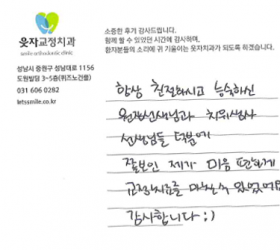 웃자교정치과
smile orthodontic clinic
성남시 중원구 성남대로 1156
도원빌딩 3~5층(위즈노건물)
031 606 0282
letssmile.co.kr
소중한 후기 감사드립니다.
함께 할 수 있었던 시간에 감사하며,
환자분들의 소리에 귀 기울이는 웃자치과가 되도록 하겠습니다.
항상 친절하시고 능숙하신
원장선생님과 치위생사
선생님들 덕분에
겁많은 제가 마음 편하게
교정치료를 마칠 수 있었어요
감사합니다 ;)